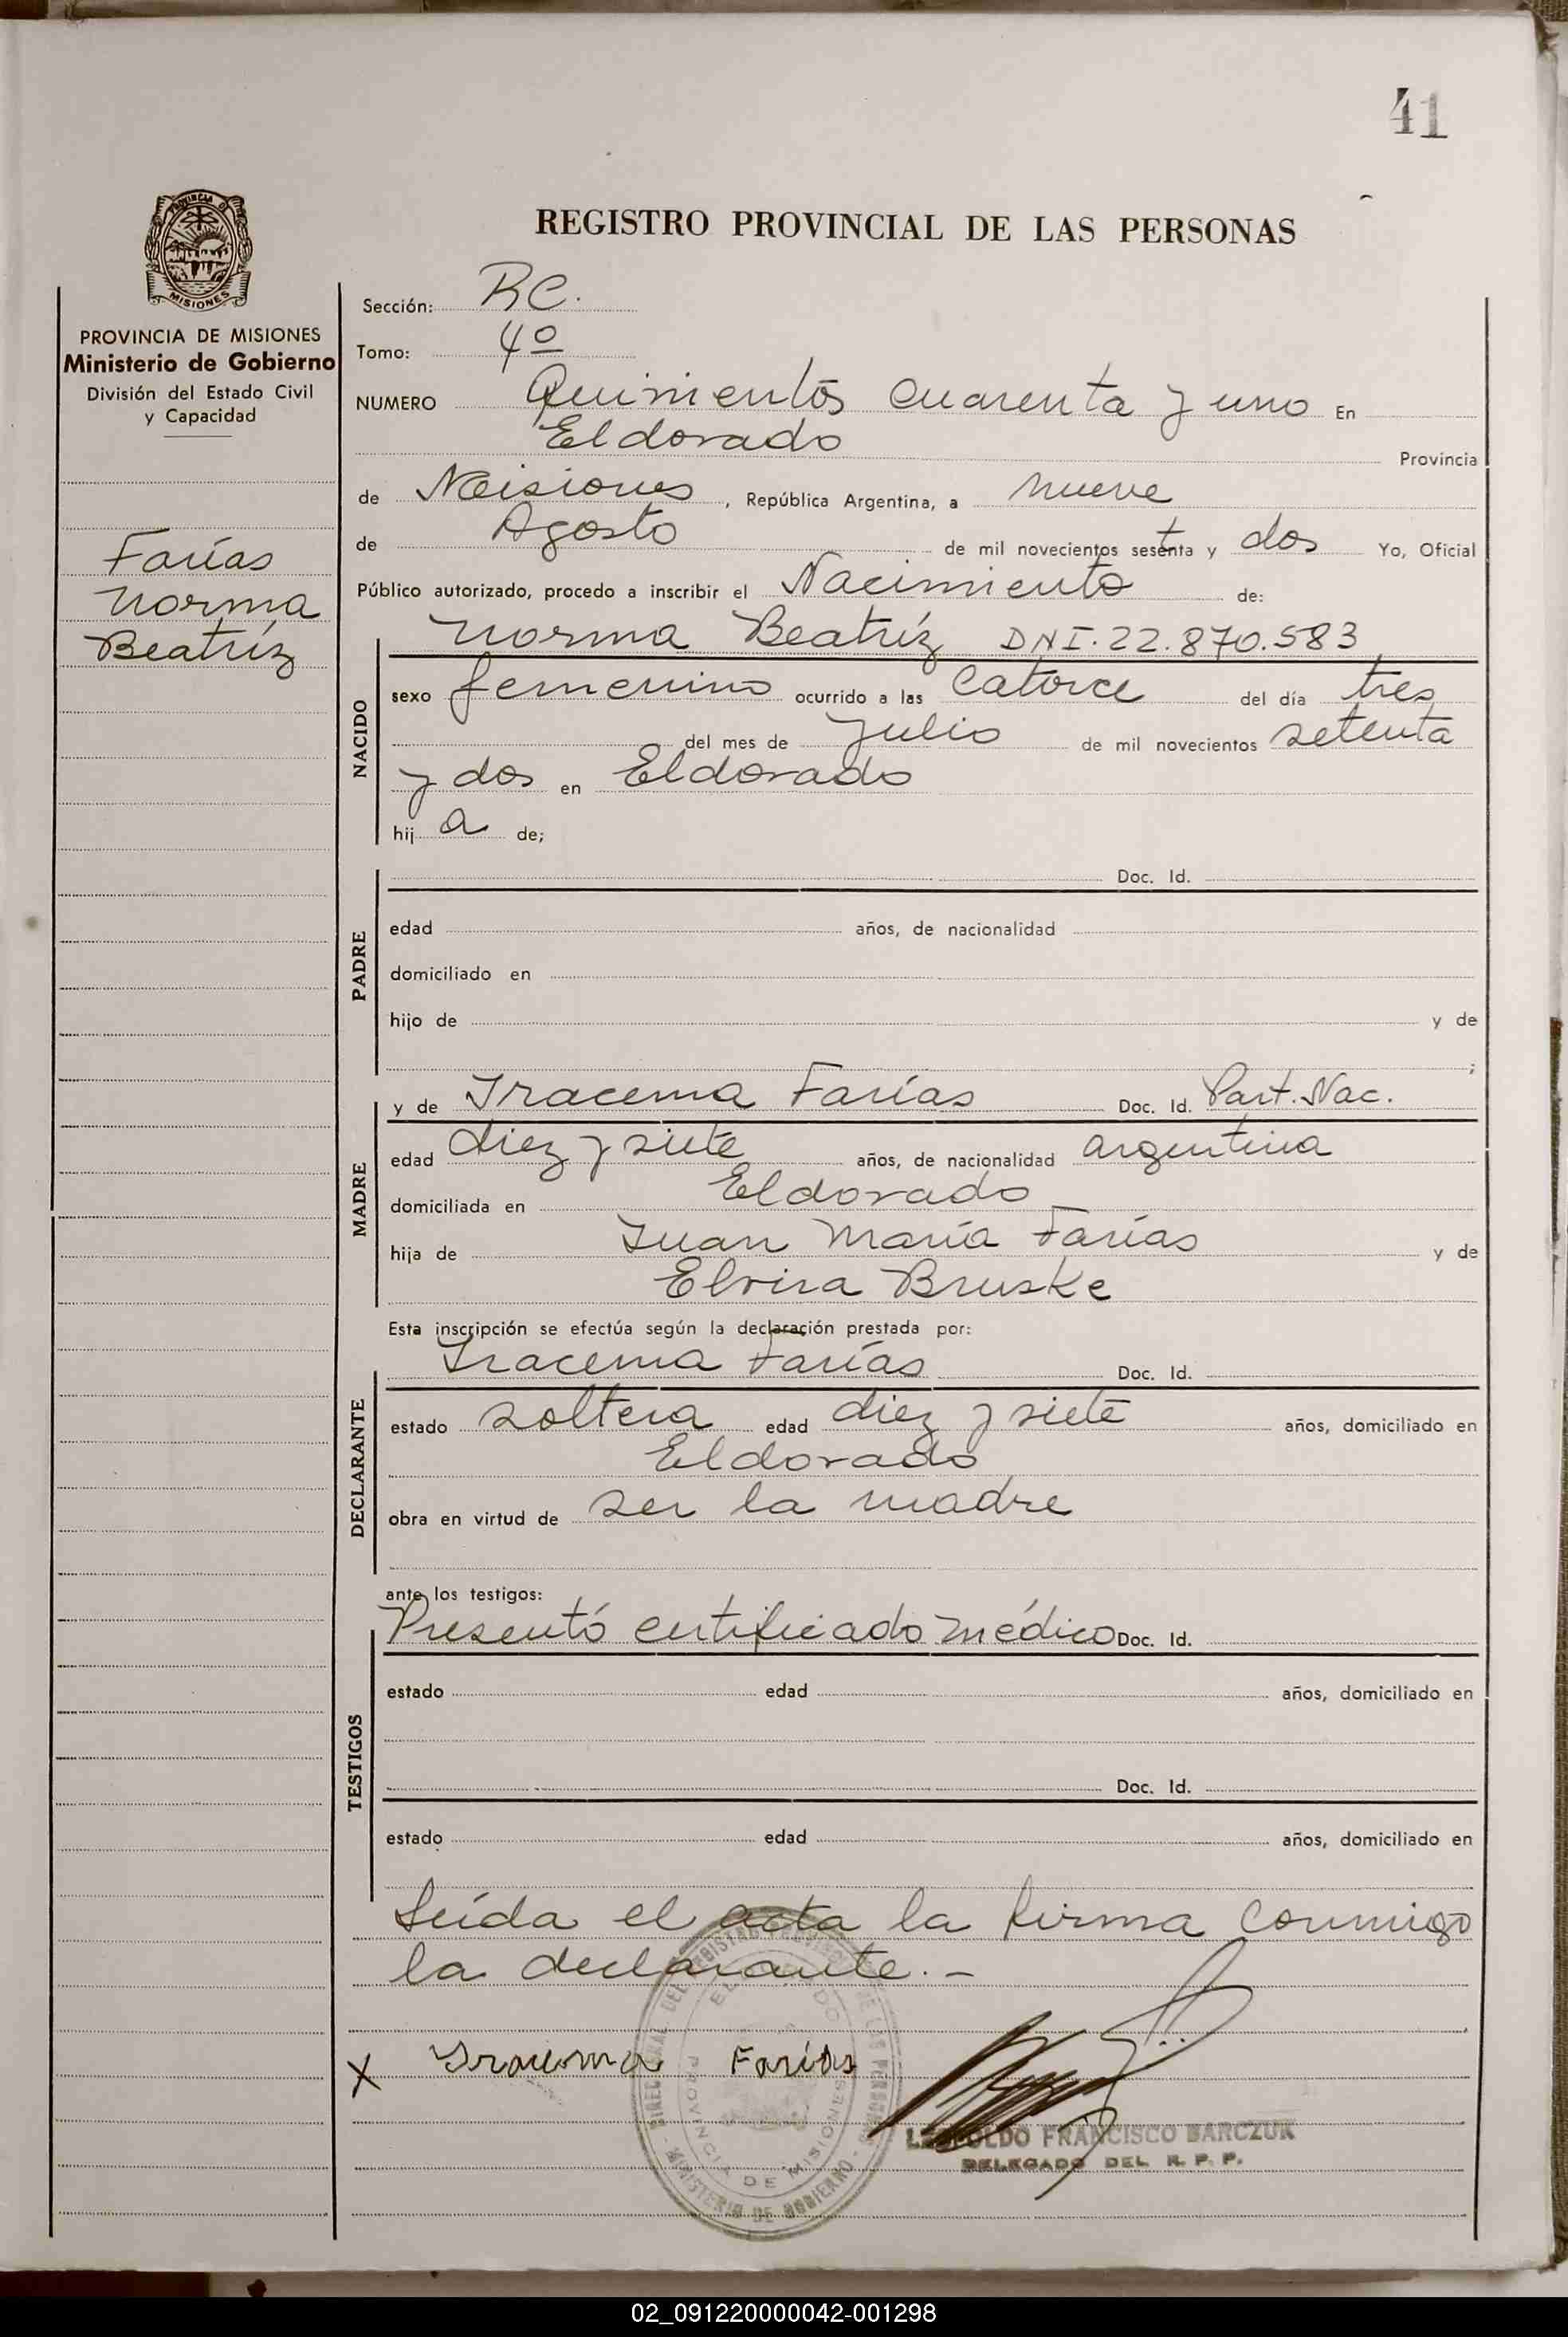 41
PROVINCIA DE
MISIONES
PROVINCIA DE MISIONES
Ministerio de Gobierno
División del Estado Civil
y Capacidad
Farías
Norma
Beatríz
REGISTRO PROVINCIAL DE LAS PERSONAS
Sección: RC.
Tomo: 4º
NUMERO Quinientos cuarenta y uno En
Eldorado Provincia
de Misiones, República Argentina, a nueve
de Agosto de mil novecientos setenta y dos Yo, Oficial
Público autorizado, procedo a inscribir el Nacimiento de:
Norma Beatríz DNI. 22.870.583
NACIDO
sexo femenino ocurrido a las catorce del día tres
del mes de Julio de mil novecientos setenta
y dos en Eldorado
hij a de;
PADRE
Doc. Id.
edad años, de nacionalidad
domiciliado en
hijo de y de
;
MADRE
y de Iracema Farías Doc. Id. Part. Nac.
edad diez y siete años, de nacionalidad argentina
domiciliada en Eldorado
hija de Juan María Farías y de
Elvira Bruske
Esta inscripción se efectúa según la declaración prestada por:
DECLARANTE
Iracema Farías Doc. Id.
estado soltera edad diez y siete años, domiciliado en
Eldorado
obra en virtud de ser la madre
ante los testigos:
TESTIGOS
Presentó certificado médico Doc. Id.
estado edad años, domiciliado en
Doc. Id.
estado edad años, domiciliado en
Leída el acta la firma conmigo
la declarante.-
X Iracema Farías
DEL REGISTRO PROVINCIAL DE LAS PERSONAS
MINISTERIO DE GOBIERNO
ELDORADO
PROVINCIA DE MISIONES
LEOPOLDO FRANCISCO BARCZUK
DELEGADO DEL R. P. P.
02_091220000042-001298